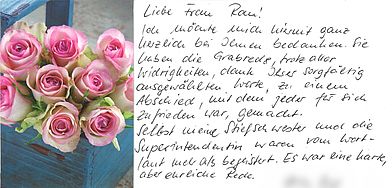 Liebe Frau Rau!
Ich möchte mich hiermit ganz
herzlich bei Ihnen bedanken. Sie
haben die Grabrede, trotz aller
Widrigkeiten, dank Ihrer sorgfältig
ausgewählten Worte, zu einem
Abschied, mit dem jeder für sich
zufrieden war, gemacht.
Selbst meine Stiefschwester und die
Superintendentin waren vom Wort-
laut mehr als begeistert. Es war eine harte,
aber ehrliche Rede.